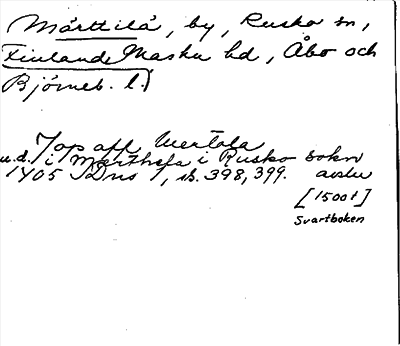 Märttilä, by, Rusko sn,
Finland, Masku hd, Åbo och
Björneb. l.)
Jop aff Wertala
u.d. i Merthela i Rusko sokn
1405 Dns 1, sb. 398, 399. avskr
[1500t]
Svartboken